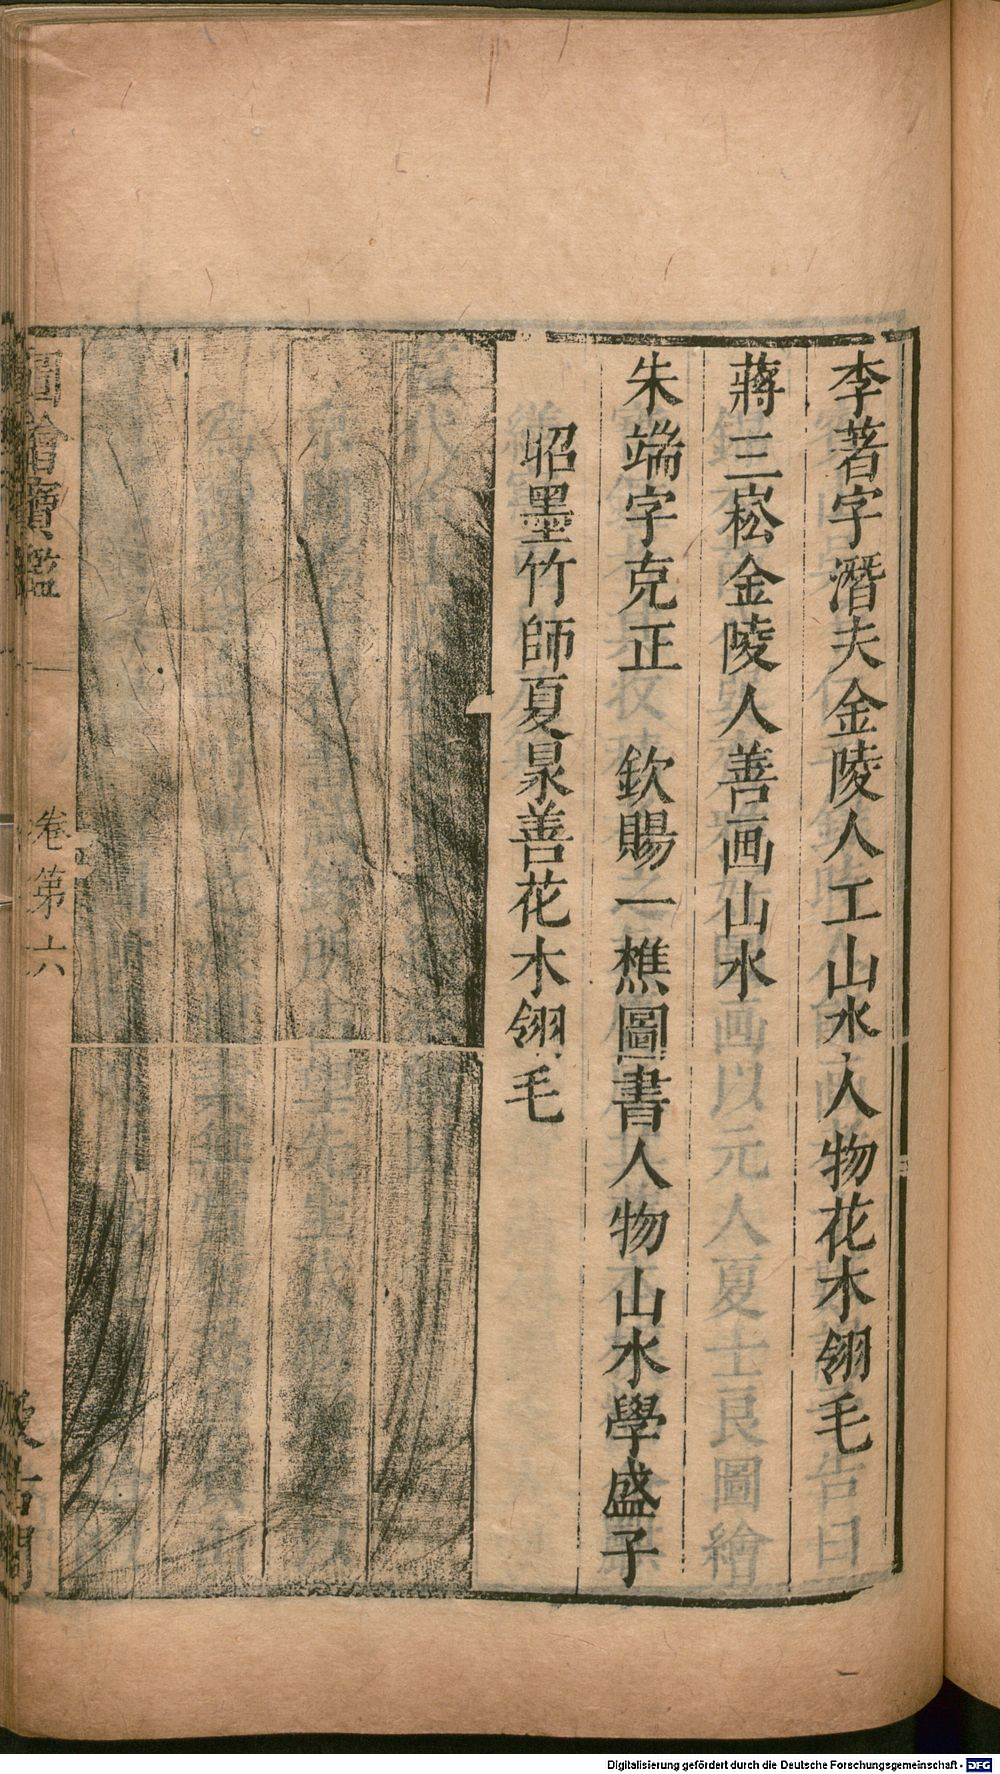 李著字潛夫金陵人工山水人物花木翎毛
蔣三崧金陵人善画山水
朱端字克正　欽賜一樵圖書人物山水學盛子
昭墨竹師夏㫤善花木翎毛
圖繪寶鑑
卷第六
汲古閣
Digitalisierung gefördert durch die Deutsche Forschungsgemeinschaft - DFG